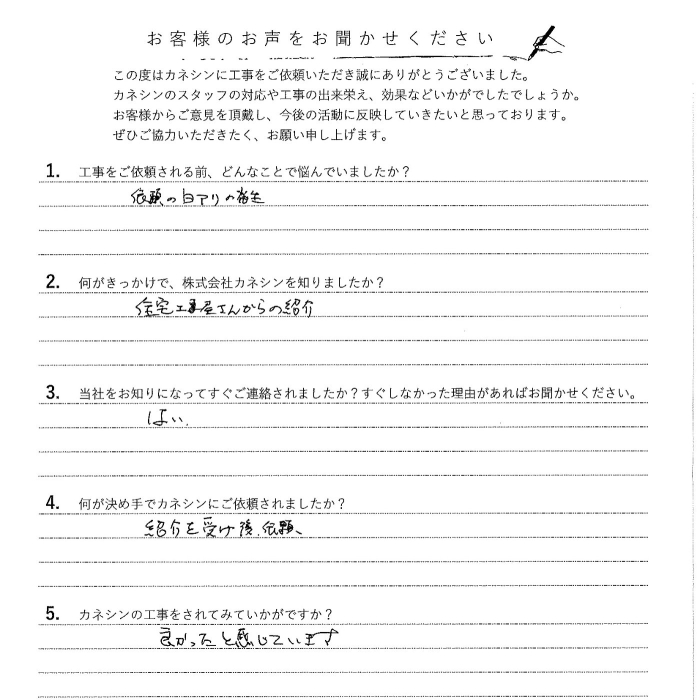 お客様のお声をお聞かせください
この度はカネシンに工事をご依頼いただき誠にありがとうございました。
カネシンのスタッフの対応や工事の出来栄え、効果などいかがでしたでしょうか。
お客様からご意見を頂戴し、今後の活動に反映していきたいと思っております。
ぜひご協力いただきたく、お願い申し上げます。
1. 工事をご依頼される前、どんなことで悩んでいましたか?
依頼の白アリの発生
2. 何がきっかけで、株式会社カネシンを知りましたか?
住宅工事屋さんからの紹介
3. 当社をお知りになってすぐご連絡されましたか?すぐしなかった理由があればお聞かせください。
はい.
4. 何が決め手でカネシンにご依頼されましたか?
紹介を受け後、依頼、
5. カネシンの工事をされてみていかがですか?
良かったと感じています